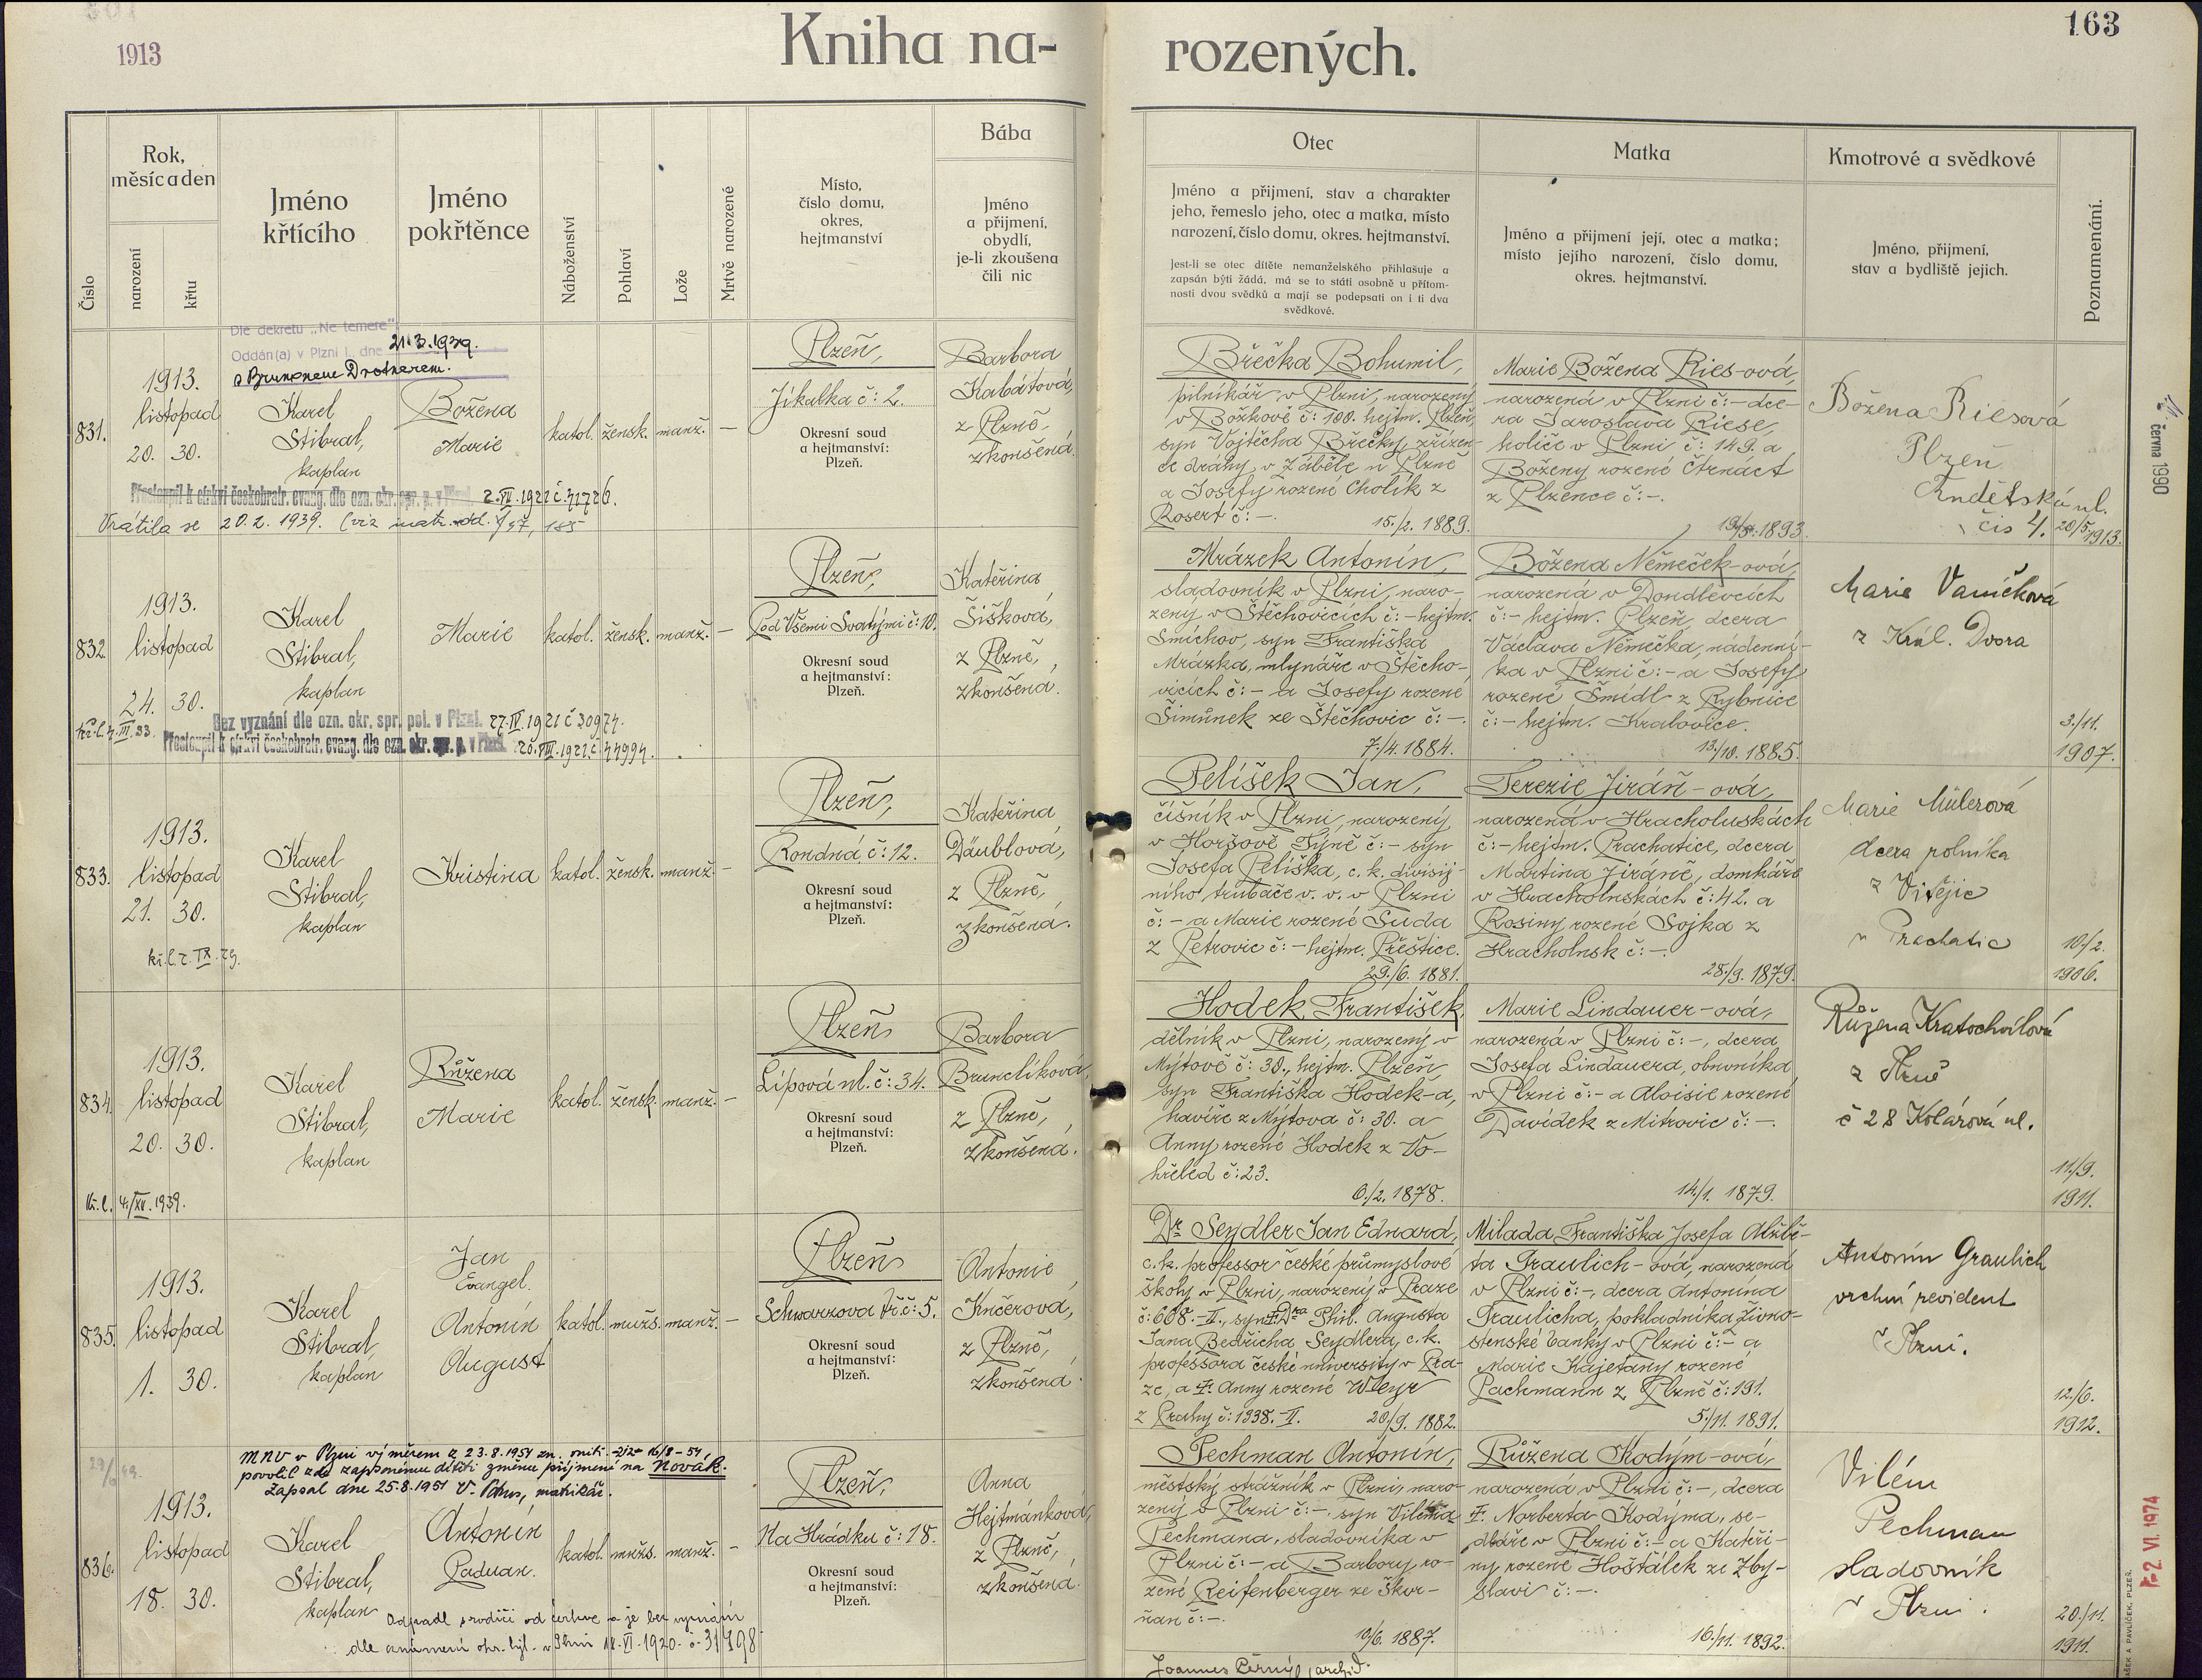 1913
Kniha na-
rozených.
163
Číslo
Rok,
měsíc a den
narození
křtu
Jméno
křtícího
Jméno
pokřtěnce
Náboženství
Pohlaví
Lože
Mrtvě narozené
Místo,
číslo domu,
okres,
hejtmanství
Bába
Jméno
a přijmení,
obydlí,
je-li zkoušena
čili nic
Otec
Jméno a přijmení, stav a charakter
jeho, řemeslo jeho, otec a matka, místo
narození, číslo domu, okres. hejtmanství.
Jest-li se otec dítěte nemanželského přihlašuje a
zapsán býti žádá, má se to státi osobně u přítom-
nosti dvou svědků a mají se podepsati on i ti dva
svědkové.
Matka
Jméno a přijmení její, otec a matka;
místo jejího narození, číslo domu,
okres. hejtmanství.
Kmotrové a svědkové
Jméno, přijmení,
stav a bydliště jejich.
Poznamenání.
Dle dekretu „Ne temere"
Oddán(a) v Plzni I., dne 21.3.1939.
s Brunonem Drotnerem.
831.
1913.
listopad
20. 30.
Karel
Stibral,
kaplan
Božena
Marie
katol. žensk. manž. —
Plzeň,
Jikalka č: 2.
Okresní soud
a hejtmanství:
Plzeň.
Barbora
Kabátová,
z Plzně,
zkoušená.
Břečka Bohumil,
pilníkář v Plzni, narozený
v Božkově č: 100. hejtm. Plzeň,
syn Vojtěcha Břečky, zřízen-
ce dráhy v Zábělé u Plzně
a Josefy rozené Cholik z
Rosert č: —.
15./2. 1889.
Marie Božena Ries-ová,
narozená v Plzni č: — dce-
ra Jaroslava Riese,
holiče v Plzni č: 149. a
Boženy rozené Čtrnáct
z Plzence č: —.
1893.
Božena Riesová
Plzeň
Andělská ul.
čís 4.
20/5. 1913.
června 1990
Přestoupil k církvi českobratr. evang. dle ozn. okr. spr. p. v Plzni 2.VII.1921 č 71726.
Vrátila se 20.2. 1939.
832.
1913.
listopad
24. 30.
Karel
Stibral,
kaplan
Marie
katol. žensk. manž. —
Plzeň,
Pod Všemi Svatými č: 10.
Okresní soud
a hejtmanství:
Plzeň.
Kateřina
Šišková,
z Plzně,
zkoušená.
Mrázek Antonín,
sladovník v Plzni, naro-
zený v Štěchovicích č: — hejtm.
Smíchov, syn Františka
Mrázka, mlynáře v Štěcho-
vicích č: — a Josefy rozené
Šimůnek ze Štěchovic č: —.
7./4. 1884.
Božena Němeček-ová,
narozená v Doudlevcích
č: — hejtm. Plzeň, dcera
Václava Němečka, nádenní-
ka v Plzni č: — a Josefy
rozené Šmídl z Rybnice
č: — hejtm. Kralovice.
13./10. 1885.
Marie Vaníčková
z Král. Dvora
3./11.
1907.
Bez vyznání dle ozn. okr. spr. pol. v Plzni. 27.IV.1921 č 30974.
Přestoupil k církvi českobratr. evang. dle ozn. okr. spr. p. v Plzni.
833.
1913.
listopad
21. 30.
Karel
Stibral,
kaplan
Kristina
katol. žensk. manž. —
Plzeň,
Rondná č: 12.
Okresní soud
a hejtmanství:
Plzeň.
Kateřina
Däublová,
z Plzně,
zkoušená.
Pelíšek Jan,
číšník v Plzni, narozený
v Horšově Týně č: — syn
Josefa Pelíška, c. k. divisij-
ního trubače v. v. v Plzni
č: — a Marie rozené Suda
z Petrovic č: — hejtm. Přeštice.
29./6. 1881.
Terezie Jiráň-ová,
narozená v Hracholuskách
č: — hejtm. Prachatice, dcera
Martina Jiráně, domkáře
v Hracholuskách č: 42. a
Rosiny rozené Sojka z
Hracholusk č: —.
28./9. 1879.
Marie Müllerová
dcera rolníka
z Vitějic
u Prachatic
10./2.
1906.
834.
1913.
listopad
20. 30.
Karel
Stibral,
kaplan
Růžena
Marie
katol. žensk. manž. —
Plzeň
Lipová ul. č: 34.
Okresní soud
a hejtmanství:
Plzeň.
Barbora
Brunclíková,
z Plzně,
zkoušená.
Hodek František,
dělník v Plzni, narozený v
Mýtově č: 30., hejtm. Plzeň,
syn Františka Hodek-a,
havíře z Mýtova č: 30. a
Anny rozené Hodek z Vo-
hřeled č: 23.
6./2. 1878.
Marie Lindauer-ová,
narozená v Plzni č: —, dcera
Josefa Lindauera, obuvníka
v Plzni č: — a Aloisie rozené
Davídek z Mitrovic č: —.
14./1. 1879.
Růžena Kratochvílová
z Plzně
č 28 Kolárová ul.
11./9.
1911.
835.
1913.
listopad
1. 30.
Karel
Stibral,
kaplan
Jan
Evangel.
Antonín
August
katol. mužs. manž. —
Plzeň
Schwarzova tř. č: 5.
Okresní soud
a hejtmanství:
Plzeň.
Antonie
Kučerová,
z Plzně,
zkoušená.
Dr. Seydler Jan Eduard,
c. k. professor české průmyslové
školy v Plzni, narozený v Praze
č: 608.-II., syn † Dra Phil. Augusta
Jana Bedřicha Seydlera, c. k.
professora české university v Pra-
ze, a †. Anny rozené Weyr
z Prahy č: 1338.-II. 20./9. 1882.
Milada Františka Josefa Alžbě-
ta Graulich-ová, narozená
v Plzni č: —, dcera Antonína
Graulicha, pokladníka Živno-
stenské banky v Plzni č: — a
Marie Kajetány rozené
Pachmann z Plzně č: 191.
5./11. 1891.
Antonín Graulich
vrchní revident
v Plzni.
12./6.
1912.
MNV v Plzni výměrem z 23.8.1951
povolil zde zapsanému dítěti změnu příjmení na Novák.
Zapsal dne 25.8.1951 matrikář.
836.
1913.
listopad
18. 30.
Karel
Stibral,
kaplan
Antonín
Paduan.
katol. mužs. manž. —
Plzeň,
Na Hrádku č: 18.
Okresní soud
a hejtmanství:
Plzeň.
Anna
Hejtmánková,
z Plzně,
zkoušená.
Pechman Antonín,
městský strážník v Plzni, naro-
zený v Plzni č: —, syn Viléma
Pechmana, sladovníka v
Plzni č: — a Barbory ro-
zené Reifenberger ze Škvr-
ňan č: —.
10/6. 1887.
Růžena Kodým-ová,
narozená v Plzni č: —, dcera
†. Norberta Kodýma, se-
dláře v Plzni č: — a Kateři-
ny rozené Hošťálek ze Zby-
slavi č: —.
16./11. 1892.
Vilém
Pechman
sladovník
v Plzni.
20./11.
1911.
Odpadl s rodiči od církve a je bez vyznání
2 VI. 1974